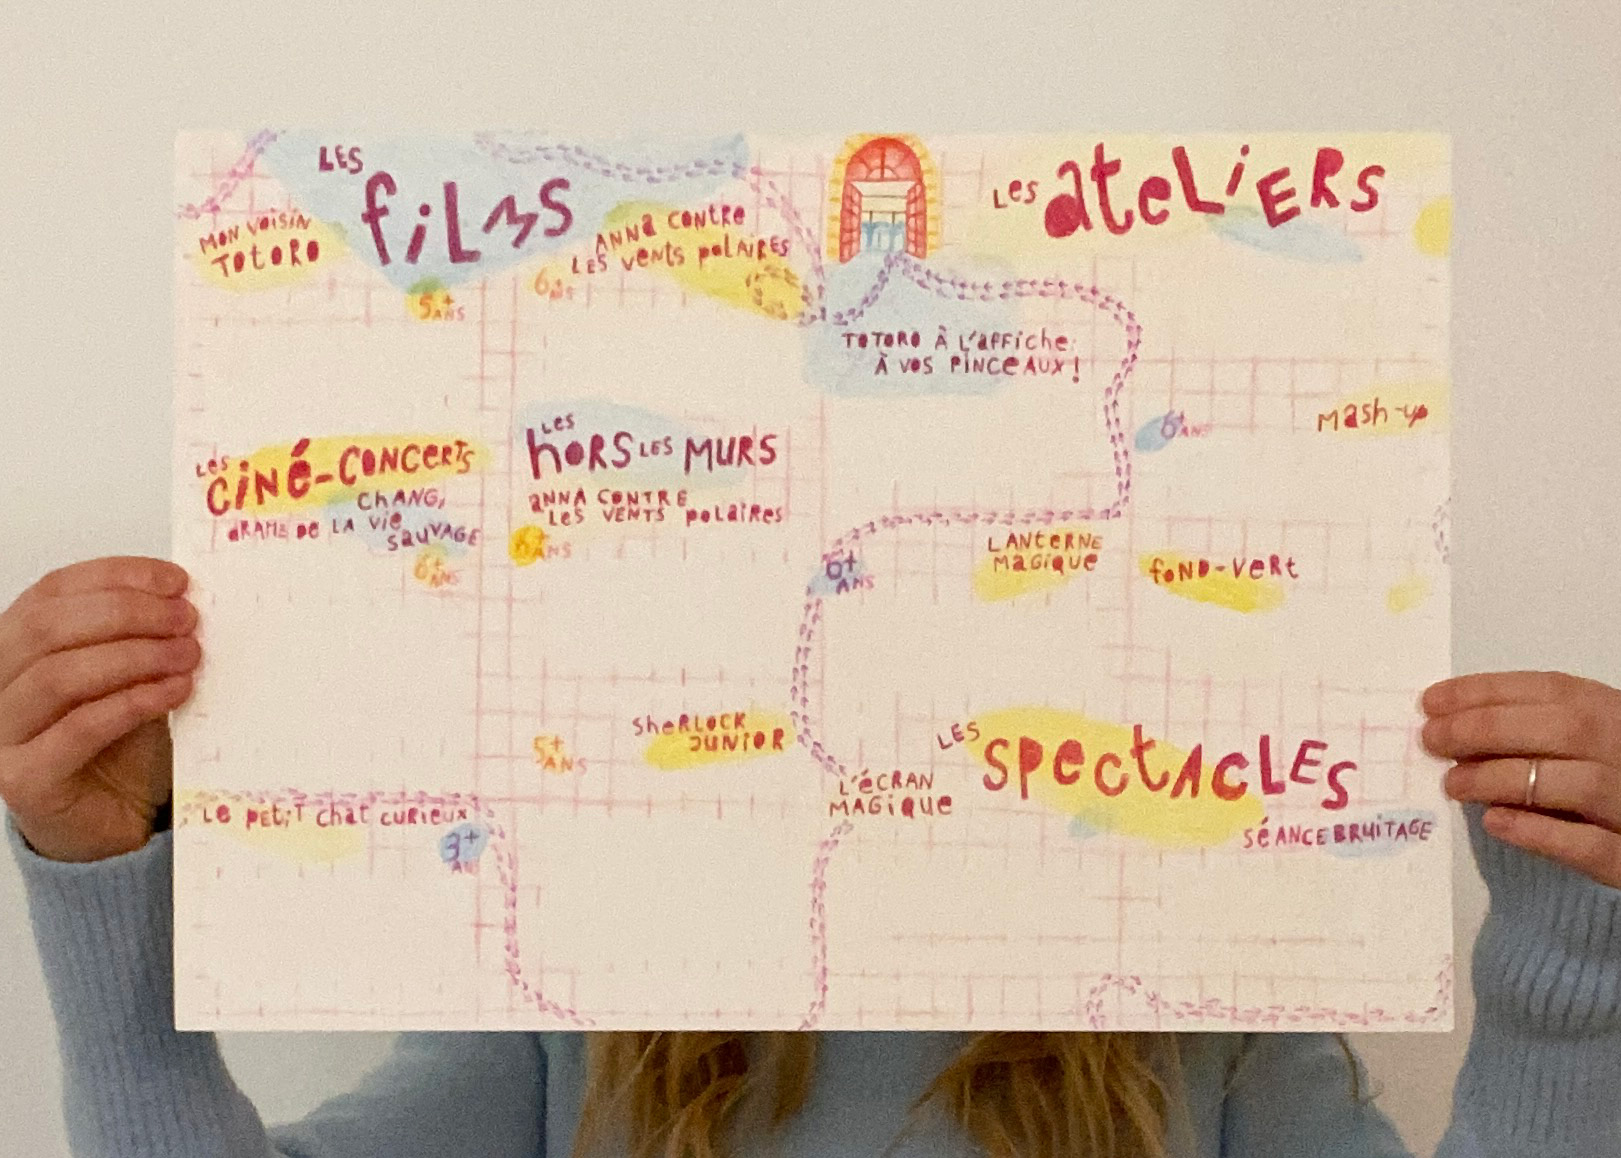 LES
fiLMS
MON VOISIN
TOTORO
5+
ANS
ANNA CONTRE
LES VENTS POLAIRES
6+
ANS
LES CINÉ-CONCERTS
CHANG,
DRAME DE LA VIE
SAUVAGE
6+
ANS
LES
HORS LES MURS
ANNA CONTRE
LES VENTS POLAIRES
6+
ANS
SHERLOCK
JUNIOR
5+
ANS
LE PETIT CHAT CURIEUX
3+
ANS
LES ATELIERS
TOTORO À L'AFFICHE:
À VOS PINCEAUX!
6+
ANS
MASH-UP
LANTERNE
MAGIQUE
6+
ANS
FOND-VERT
L'ÉCRAN
MAGIQUE
LES
SPECTACLES
SÉANCE BRUITAGE